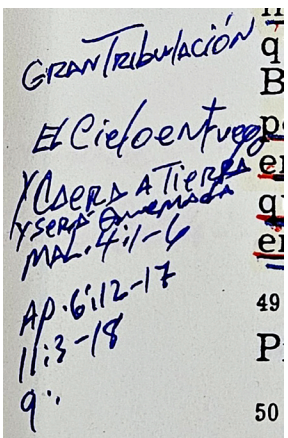 GRAN TRIBULACIÓN
El Cielo en fuego
Y CAERA A TIERRA
Y SERÁ QUEMADA
MAL. 4:1-6
AP. 6:12-17
11:3-18
9:
q
B
p
en
qu
en
49
P
50